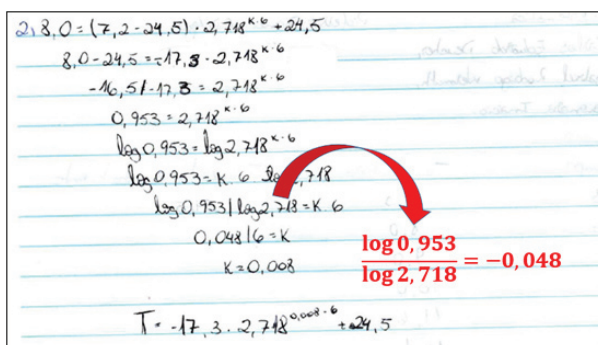 2, 8,0 = (7,2 - 24,5) · 2,718^K·6 + 24,5
8,0 - 24,5 = -17,3 · 2,718^K·6
-16,5/-17,3 = 2,718^K·6
0,953 = 2,718^K·6
log 0,953 = log 2,718^K·6
log 0,953 = K · 6 log 2,718
log 0,953 / log 2,718 = K · 6
0,048/6 = K
K = 0,008
log 0,953
log 2,718
= -0,048
T = -17,3 · 2,718^0,008·6 + 24,5